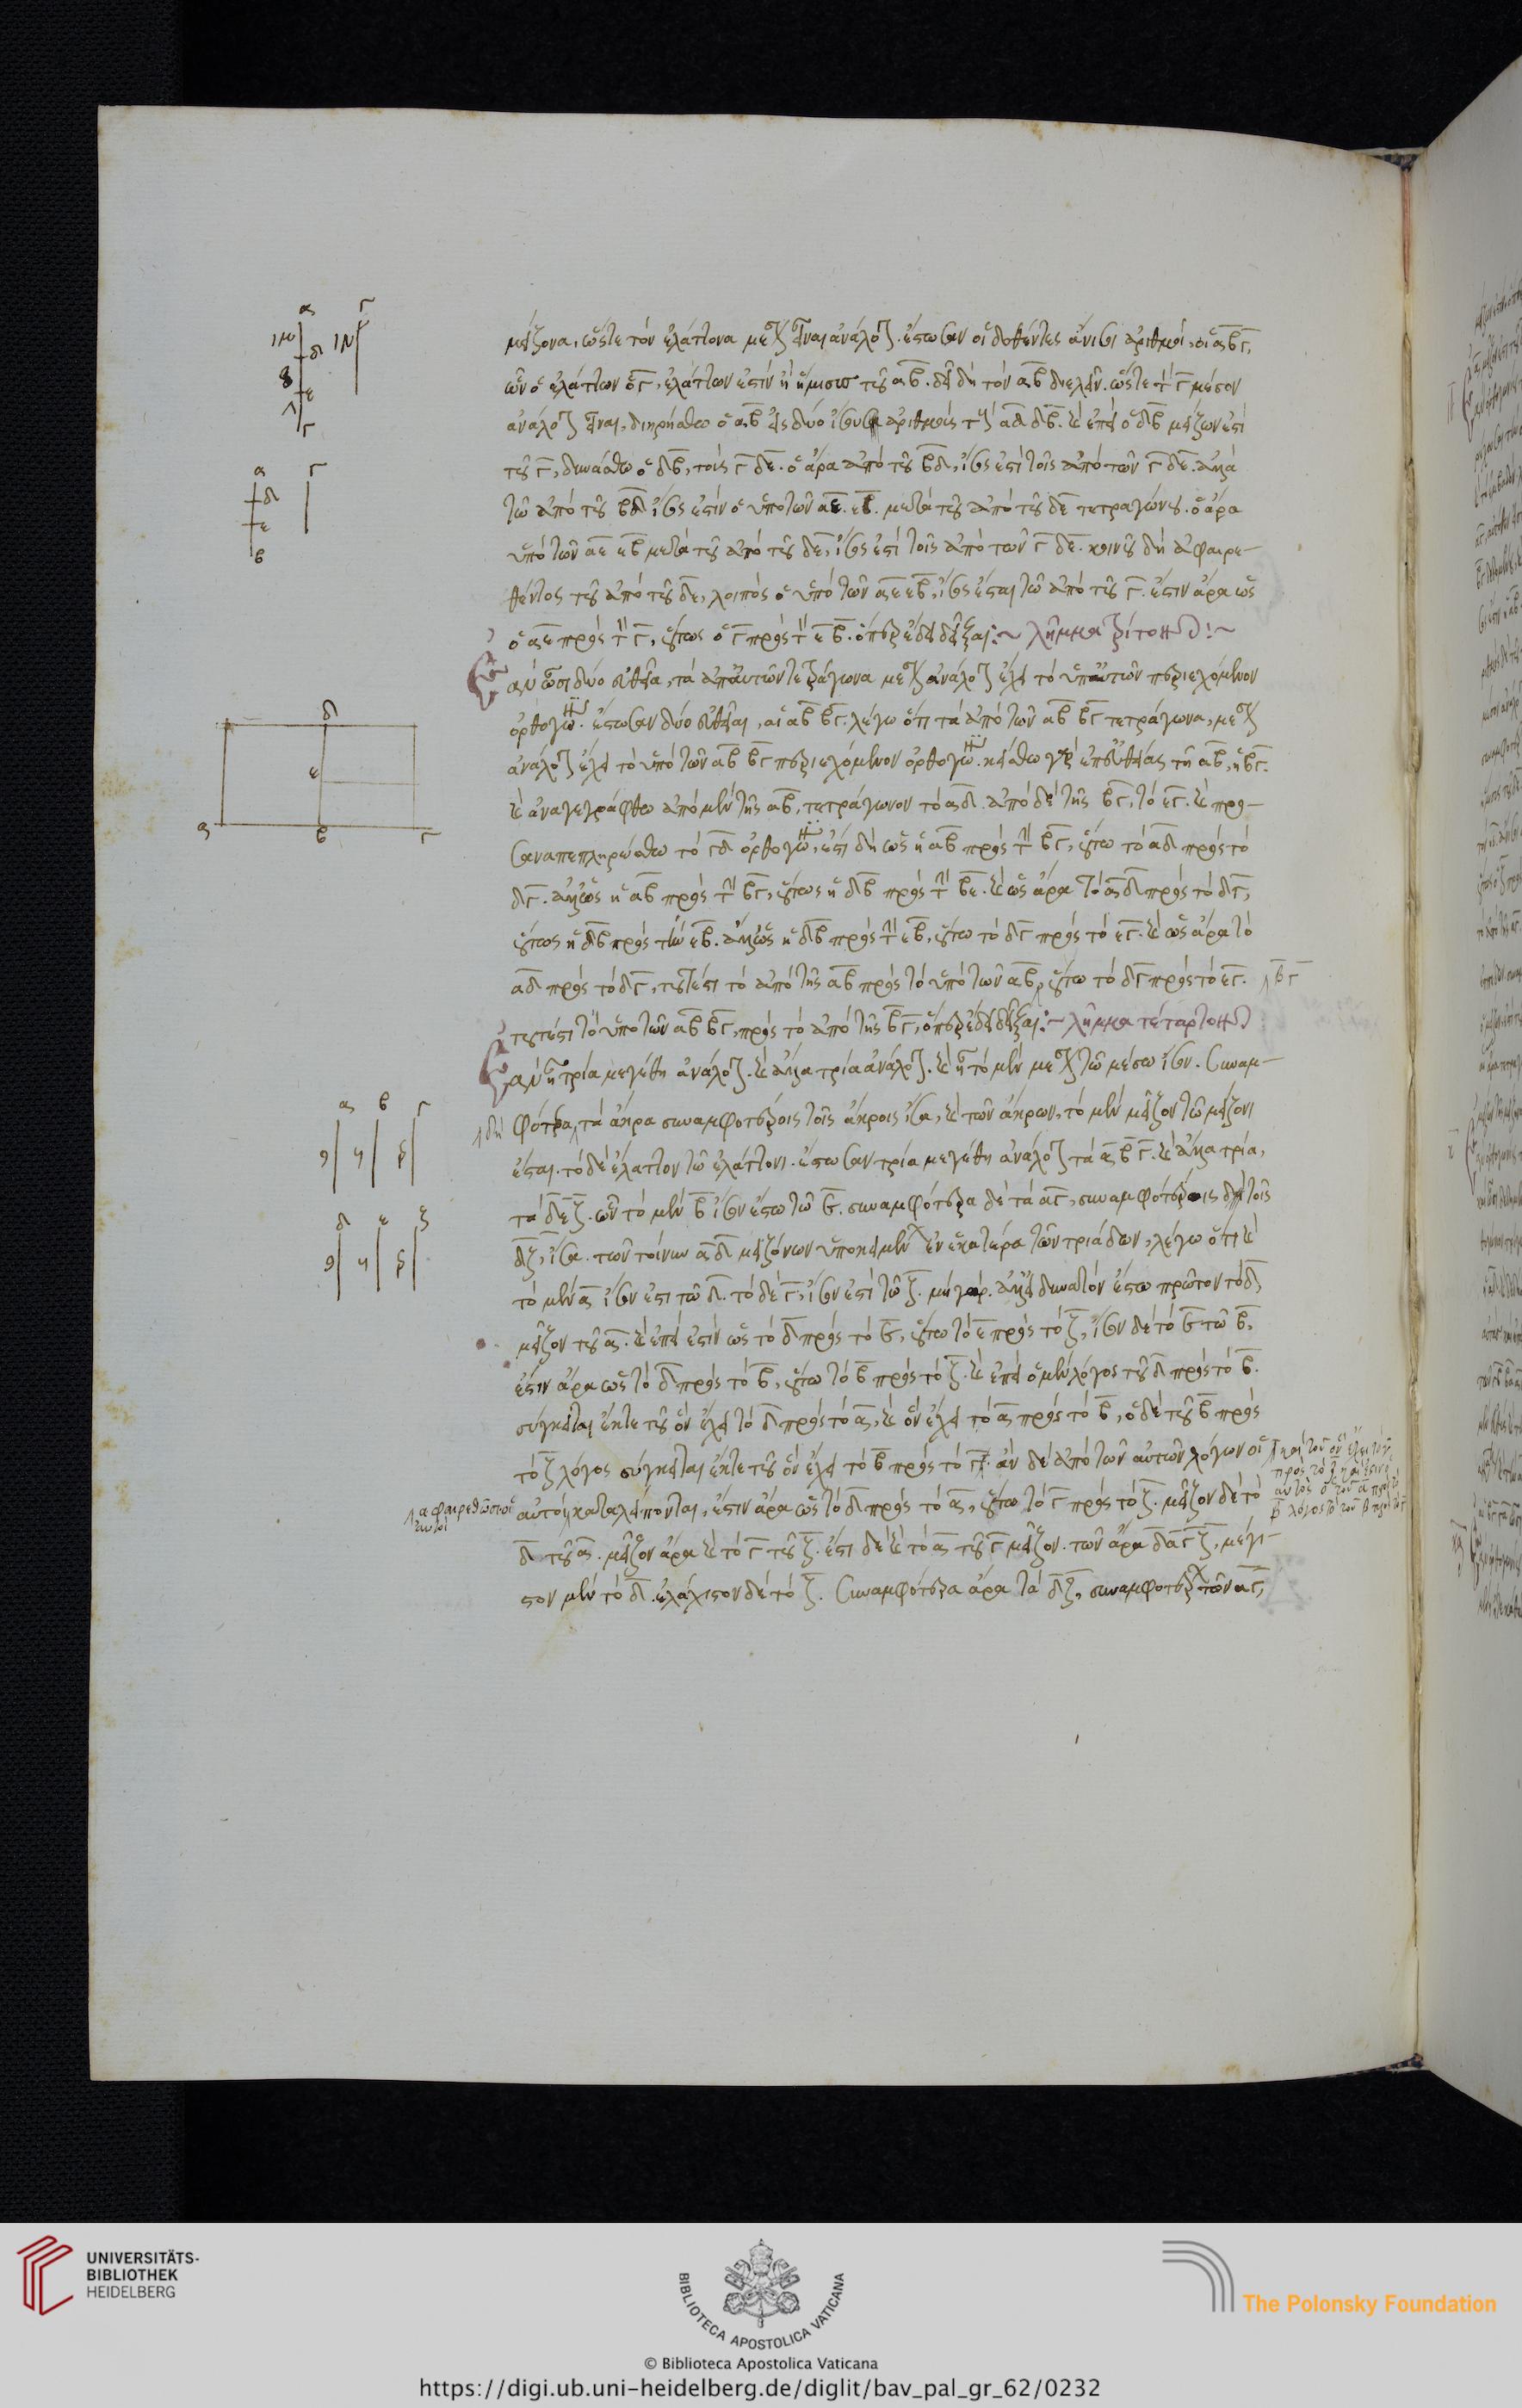 μείζονα, ὥστε τὸν ἐλάττονα μέσον εἶναι ἀνάλογον. ἔστωσαν οἱ δοθέντες ἄνισοι ἀριθμοὶ, οἱ αβ γ,
ὧν ὁ ἐλάττων ὁ γ, ἐλάττων ἐστὶν ἢ ἥμισυς τοῦ αβ. δεῖ δὴ τὸν αβ διελεῖν. ὥστε τὸν γ μέσον
ἀνάλογον εἶναι. διῃρήσθω ὁ αβ εἰς δύο ἴσους ἀριθμοὺς τοὺς αδ δβ. καὶ ἐπεὶ ὁ δβ μείζων ἐστὶ
τοῦ γ, δυνάσθω ὁ δβ, τοῖς γ δε. ὁ ἄρα ἀπὸ τοῦ βδ, ἴσος ἐστὶ τοῖς ἀπὸ τῶν γ δε. ἀλλὰ
τῷ ἀπὸ τοῦ βδ ἴσος ἐστὶν ὁ ὑπὸ τῶν αε. εβ. μετὰ τοῦ ἀπὸ τοῦ δε τετραγώνου. ὁ ἄρα
ὑπὸ τῶν αε εβ μετὰ τοῦ ἀπὸ τοῦ δε, ἴσος ἐστὶ τοῖς ἀπὸ τῶν γ δε. κοινοῦ δὴ ἀφαιρε-
θέντος τοῦ ἀπὸ τοῦ δε, λοιπὸς ὁ ὑπὸ τῶν αε εβ, ἴσος ἔσται τῷ ἀπὸ τοῦ γ. ἔστιν ἄρα ὡς
ὁ αε πρὸς τὸν γ, οὕτως ὁ γ πρὸς τὸν εβ. ὅπερ ἔδει δεῖξαι:~ λῆμμα τρίτον:~
ἐὰν ὦσι δύο εὐθεῖαι, τὰ ἀπ' αὐτῶν τετράγωνα μέσον ἀνάλογον ἔχει τὸ ὑπ' αὐτῶν περιεχόμενον
ὀρθογώνιον. ἔστωσαν δύο εὐθεῖαι, αἱ αβ βγ. λέγω ὅτι τὰ ἀπὸ τῶν αβ βγ τετράγωνα, μέσον
ἀνάλογον ἔχει τὸ ὑπὸ τῶν αβ βγ περιεχόμενον ὀρθογώνιον. κείσθω γὰρ ἐπ' εὐθείας τῇ αβ, ἡ βγ.
καὶ ἀναγεγράφθω ἀπὸ μὲν τῆς αβ, τετράγωνον τὸ αδ. ἀπὸ δὲ τῆς βγ, τὸ εγ. καὶ προ-
σαναπεπληρώσθω τὸ γδ ὀρθογώνιον, ἐπεὶ δὴ ὡς ἡ αβ πρὸς τὴν βγ, οὕτω τὸ αδ πρὸς τὸ
δγ. ἀλλ' ὡς ἡ αβ πρὸς τὴν βγ, οὕτως ἡ δβ πρὸς τὴν βε. καὶ ὡς ἄρα τὸ αδ πρὸς τὸ δγ,
οὕτως ἡ δβ πρὸς τὴν εβ. ἀλλ' ὡς ἡ δβ πρὸς τὴν εβ, οὕτω τὸ δγ πρὸς τὸ εγ. καὶ ὡς ἄρα τὸ
αδ πρὸς τὸ δγ, τουτέστι τὸ ἀπὸ τῆς αβ πρὸς τὸ ὑπὸ τῶν αβ, οὕτω τὸ δγ πρὸς τὸ εγ. βγ
τουτέστι τὸ ὑπὸ τῶν αβ βγ, πρὸς τὸ ἀπὸ τῆς βγ, ὅπερ ἔδει δεῖξαι:~ λῆμμα τέταρτον
ἐὰν ᾖ τρία μεγέθη ἀνάλογον. καὶ ἄλλα τρία ἀνάλογον. καὶ ᾖ τὸ μὲν μέσον τῷ μέσῳ ἴσον. συναμ-
δὲ φότερα τὰ ἄκρα συναμφοτέροις τοῖς ἄκροις ἴσα, καὶ τῶν ἄκρων, τὸ μὲν μεῖζον τῷ μείζονι
ἔσται. τὸ δὲ ἔλαττον τῷ ἐλάττονι. ἔστωσαν τρία μεγέθη ἀνάλογον τὰ α β γ. καὶ ἄλλα τρία,
τὰ δ ε ζ. ὧν τὸ μὲν β ἴσον ἔστω τῷ ε. συναμφότερα δὲ τὰ α γ, συναμφοτέροις τοῖς
δ ζ, ἴσα. τῶν τοίνυν α δ μειζόνων ὑποκειμένων ἐν ἑκατέρᾳ τῶν τριάδων, λέγω ὅτι καὶ
τὸ μὲν α ἴσον ἐστὶ τῷ δ. τὸ δὲ γ, ἴσον ἐστὶ τῷ ζ. μὴ γάρ. ἀλλ' εἰ δυνατὸν ἔστω πρῶτον τὸ δ
μεῖζον τοῦ α. καὶ ἐπεί ἐστιν ὡς τὸ δ πρὸς τὸ ε, οὕτω τὸ ε πρὸς τὸ ζ, ἴσον δὲ τὸ ε τῷ β,
ἔστιν ἄρα ὡς τὸ δ πρὸς τὸ β, οὕτω τὸ β πρὸς τὸ ζ. καὶ ἐπεὶ ὁ μὲν λόγος τοῦ δ πρὸς τὸ β.
σύγκειται ἔκ τε τοῦ ὃν ἔχει τὸ δ πρὸς τὸ α, καὶ ὃν ἔχει τὸ α πρὸς τὸ β, ὁ δὲ τοῦ β πρὸς
τὸ ζ λόγος σύγκειται ἔκ τε τοῦ ὃν ἔχει τὸ β πρὸς τὸ γ. ἂν δὲ ἀπὸ τῶν αὐτῶν λόγων οἱ
καὶ τοῦ ὃν ἔχει τὸ γ
πρὸς τὸ ζ καὶ ἔστιν ὁ
αὐτὸς ὁ τοῦ α πρὸς τὸ
β λόγος τῷ τοῦ β πρὸς τὸ γ
ἀφαιρεθῶσιν οἱ
αὐτοὶ
αὐτοὶ καταλείπονται, ἔστιν ἄρα ὡς τὸ δ πρὸς τὸ α, οὕτω τὸ γ πρὸς τὸ ζ. μεῖζον δὲ τὸ
δ τοῦ α. μεῖζον ἄρα καὶ τὸ γ τοῦ ζ. ἔστι δὲ καὶ τὸ α τοῦ γ μεῖζον. τῶν ἄρα δ α γ ζ, μέγι-
στον μὲν τὸ δ. ἐλάχιστον δὲ τὸ ζ. συναμφότερα ἄρα τὰ δ ζ, συναμφοτέρων τῶν α γ,
α γ
δ
ε
γ
α γ
δ
ε
β
δ
ε
α β γ
α β γ
δ ε ζ
UNIVERSITÄTS-
BIBLIOTHEK
HEIDELBERG
BIBLIOTECA APOSTOLICA VATICANA
The Polonsky Foundation
© Biblioteca Apostolica Vaticana
https://digi.ub.uni-heidelberg.de/diglit/bav_pal_gr_62/0232